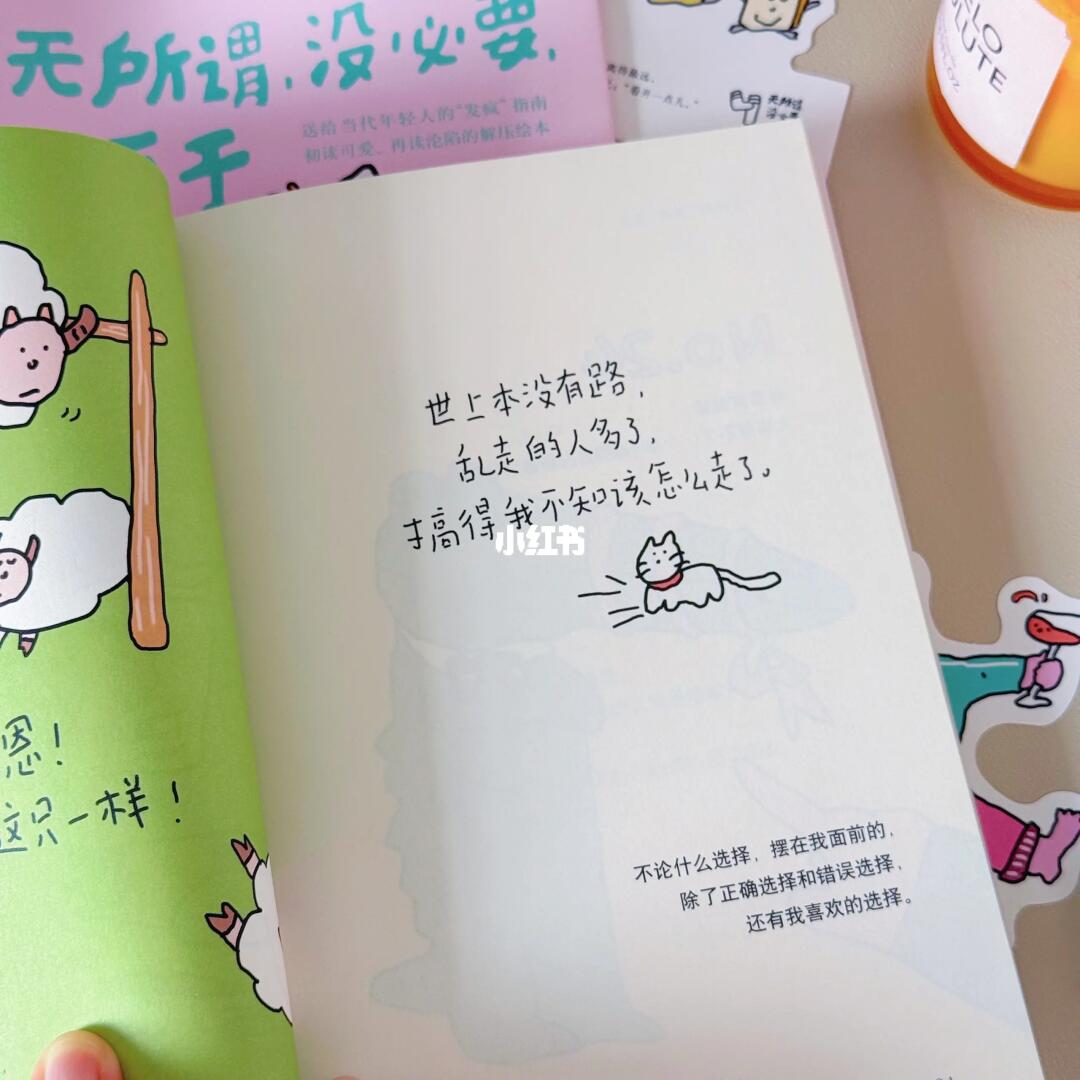 无所谓，没必要，
不至于
送给当代年轻人的“发疯”指南
初读可爱、再读沦陷的解压绘本
“看开一点儿。”
无所谓
没必要
ELO
LUTE
世上本没有路，
乱走的人多了，
搞得我不知该怎么走了。
小红书
恩！
这只一样！
不论什么选择，摆在我面前的，
除了正确选择和错误选择，
还有我喜欢的选择。